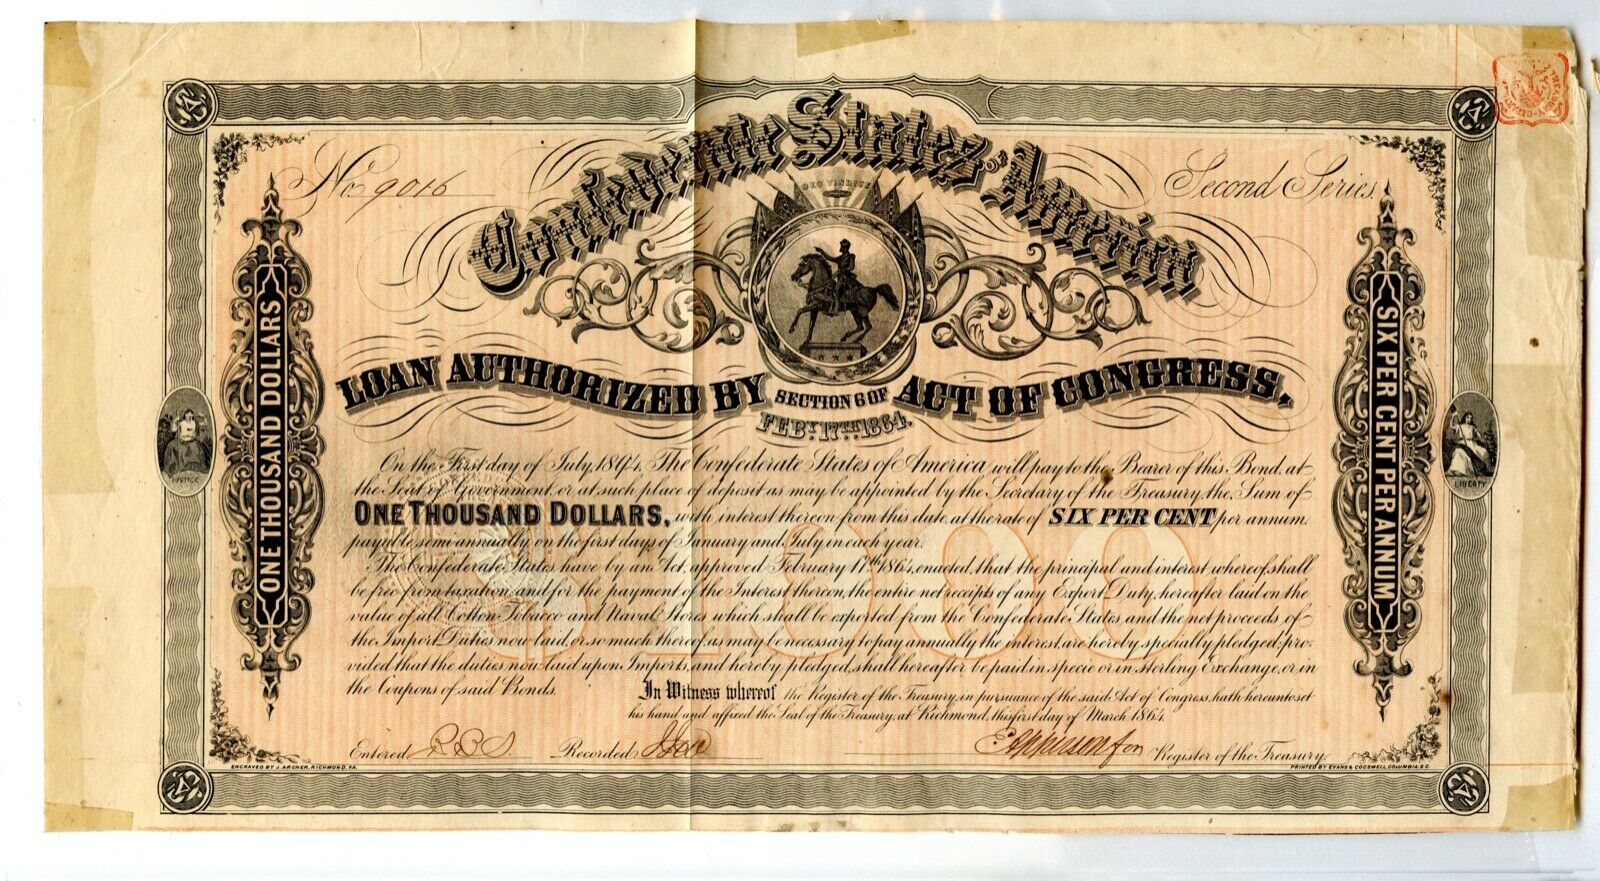 No. 9016
Second Series.
Confederate States of America
DEO VINDICE
LOAN AUTHORIZED BY SECTION 6 OF ACT OF CONGRESS,
FEBY. 17TH. 1864.
ONE THOUSAND DOLLARS
SIX PER CENT PER ANNUM
JUSTICE
LIBERTY
On the First day of July, 1894, The Confederate States of America, will pay to the Bearer of this Bond, at
the Seat of Government, or at such place of deposit as may be appointed by the Secretary of the Treasury, the Sum of
ONE THOUSAND DOLLARS, with interest thereon from this date, at the rate of SIX PER CENT per annum,
payable semi-annually on the first days of January and July in each year.
The Confederate States have by an Act, approved February 17th 1864, enacted, that the principal and interest whereof shall
be free from taxation, and for the payment of the Interest thereon, the entire net receipts of any Export Duty, hereafter laid on the
value of all Cotton, Tobacco and Naval Stores, which shall be exported from the Confederate States and the net proceeds of
the Import Duties now laid or so much thereof, as may be necessary to pay annually the interest, are hereby specially pledged; pro-
vided that the duties now laid upon Imports, and hereby pledged, shall hereafter be paid in specie or in Sterling Exchange, or in
the Coupons of said Bonds.
$1000
In Witness whereof the Register of the Treasury, in pursuance of the said Act of Congress, hath hereunto set
his hand and affixed the Seal of the Treasury, at Richmond, this first day of March 1864.
Entered Recorded Register of the Treasury.
ENGRAVED BY J. ARCHER, RICHMOND, VA.
PRINTED BY EVANS & COGSWELL, COLUMBIA, S.C.